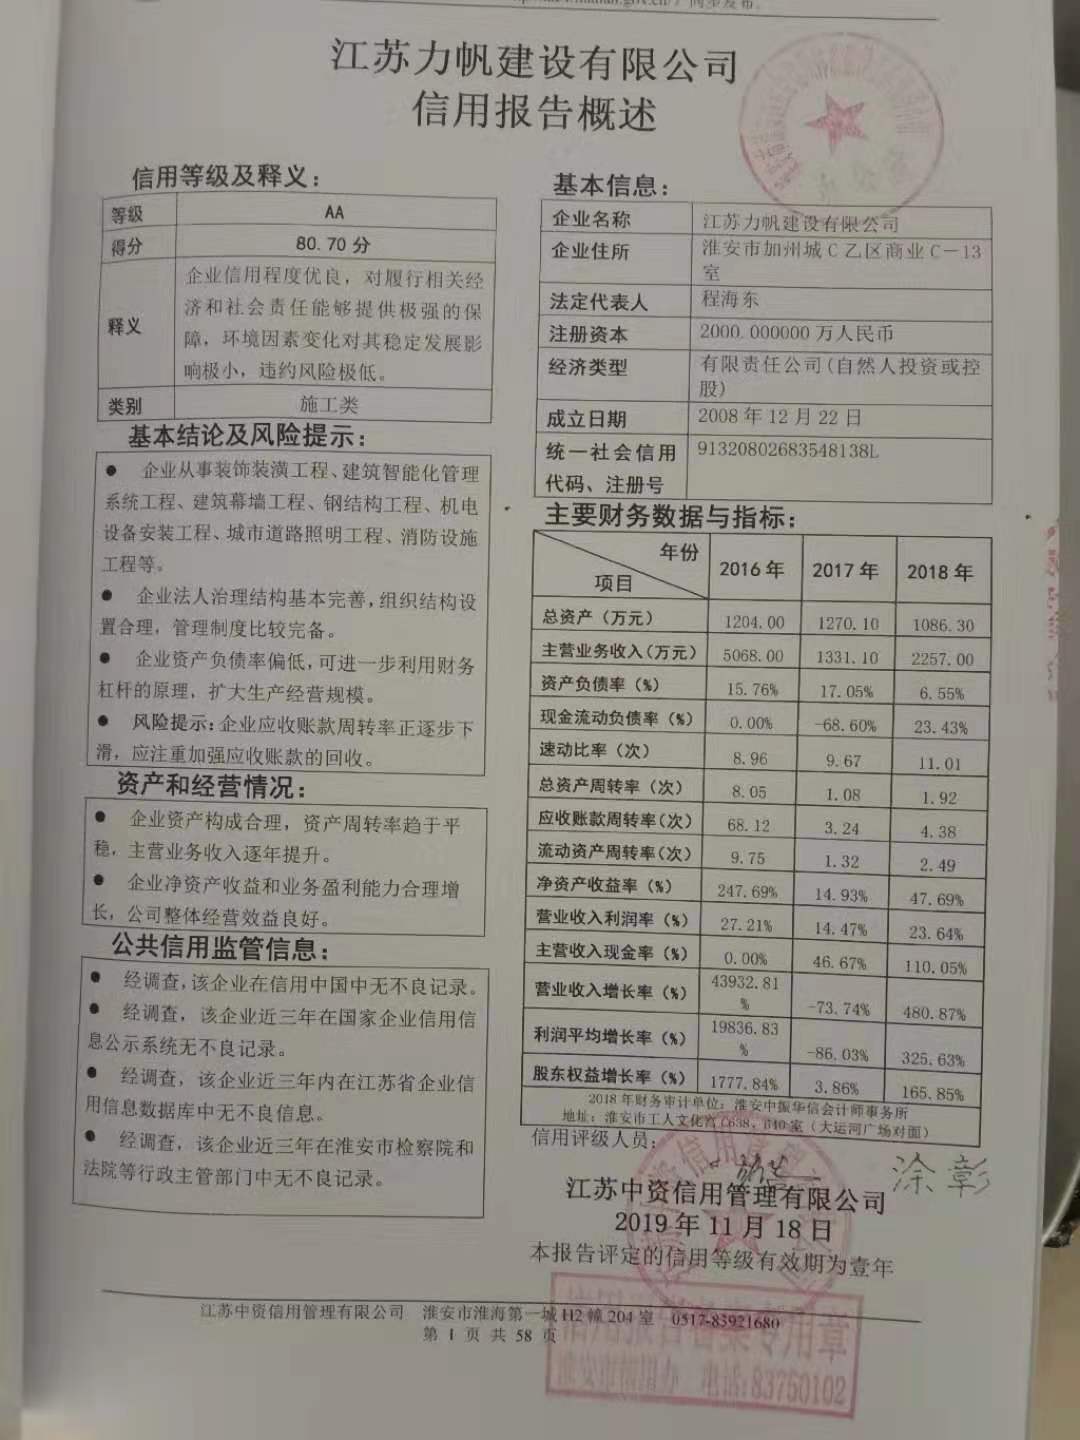 江苏力帆建设有限公司
信用报告概述
信用等级及释义：
等级 AA
得分 80.70 分
释义 企业信用程度优良，对履行相关经
济和社会责任能够提供极强的保
障，环境因素变化对其稳定发展影
响极小，违约风险极低。
类别 施工类
基本结论及风险提示：
● 企业从事装饰装潢工程、建筑智能化管理
系统工程、建筑幕墙工程、钢结构工程、机电
设备安装工程、城市道路照明工程、消防设施
工程等。
● 企业法人治理结构基本完善，组织结构设
置合理，管理制度比较完备。
● 企业资产负债率偏低，可进一步利用财务
杠杆的原理，扩大生产经营规模。
● 风险提示：企业应收账款周转率正逐步下
滑，应注重加强应收账款的回收。
资产和经营情况：
● 企业资产构成合理，资产周转率趋于平
稳，主营业务收入逐年提升。
● 企业净资产收益和业务盈利能力合理增
长，公司整体经营效益良好。
公共信用监管信息：
● 经调查，该企业在信用中国中无不良记录。
● 经调查，该企业近三年在国家企业信用信
息公示系统无不良记录。
● 经调查，该企业近三年内在江苏省企业信
用信息数据库中无不良信息。
● 经调查，该企业近三年在淮安市检察院和
法院等行政主管部门中无不良记录。
基本信息：
企业名称 江苏力帆建设有限公司
企业住所 淮安市加州城 C 乙区商业 C－13
室
法定代表人 程海东
注册资本 2000.000000 万人民币
经济类型 有限责任公司(自然人投资或控
股)
成立日期 2008 年 12 月 22 日
统一社会信用 91320802683548138L
代码、注册号
主要财务数据与指标：
年份 2016 年 2017 年 2018 年
项目
总资产（万元） 1204.00 1270.10 1086.30
主营业务收入(万元) 5068.00 1331.10 2257.00
资产负债率（%） 15.76% 17.05% 6.55%
现金流动负债率（%） 0.00% -68.60% 23.43%
速动比率（次） 8.96 9.67 11.01
总资产周转率（次） 8.05 1.08 1.92
应收账款周转率(次) 68.12 3.24 4.38
流动资产周转率(次) 9.75 1.32 2.49
净资产收益率（%） 247.69% 14.93% 47.69%
营业收入利润率（%） 27.21% 14.47% 23.64%
主营收入现金率（%） 0.00% 46.67% 110.05%
营业收入增长率（%） 43932.81
% -73.74% 480.87%
利润平均增长率（%） 19836.83
% -86.03% 325.63%
股东权益增长率（%） 1777.84% 3.86% 165.85%
2018 年财务审计单位：淮安中振华信会计师事务所
地址：淮安市工人文化宫 C638、640 室（大运河广场对面）
信用评级人员：
涂彭
江苏中资信用管理有限公司
2019 年 11 月 18 日
本报告评定的信用等级有效期为壹年
江苏中资信用管理有限公司 淮安市淮海第一城 H2 幢 204 室 0517-83921680
第 1 页 共 58 页
信用报告备案专用章
淮安市信用办 电话:83750102